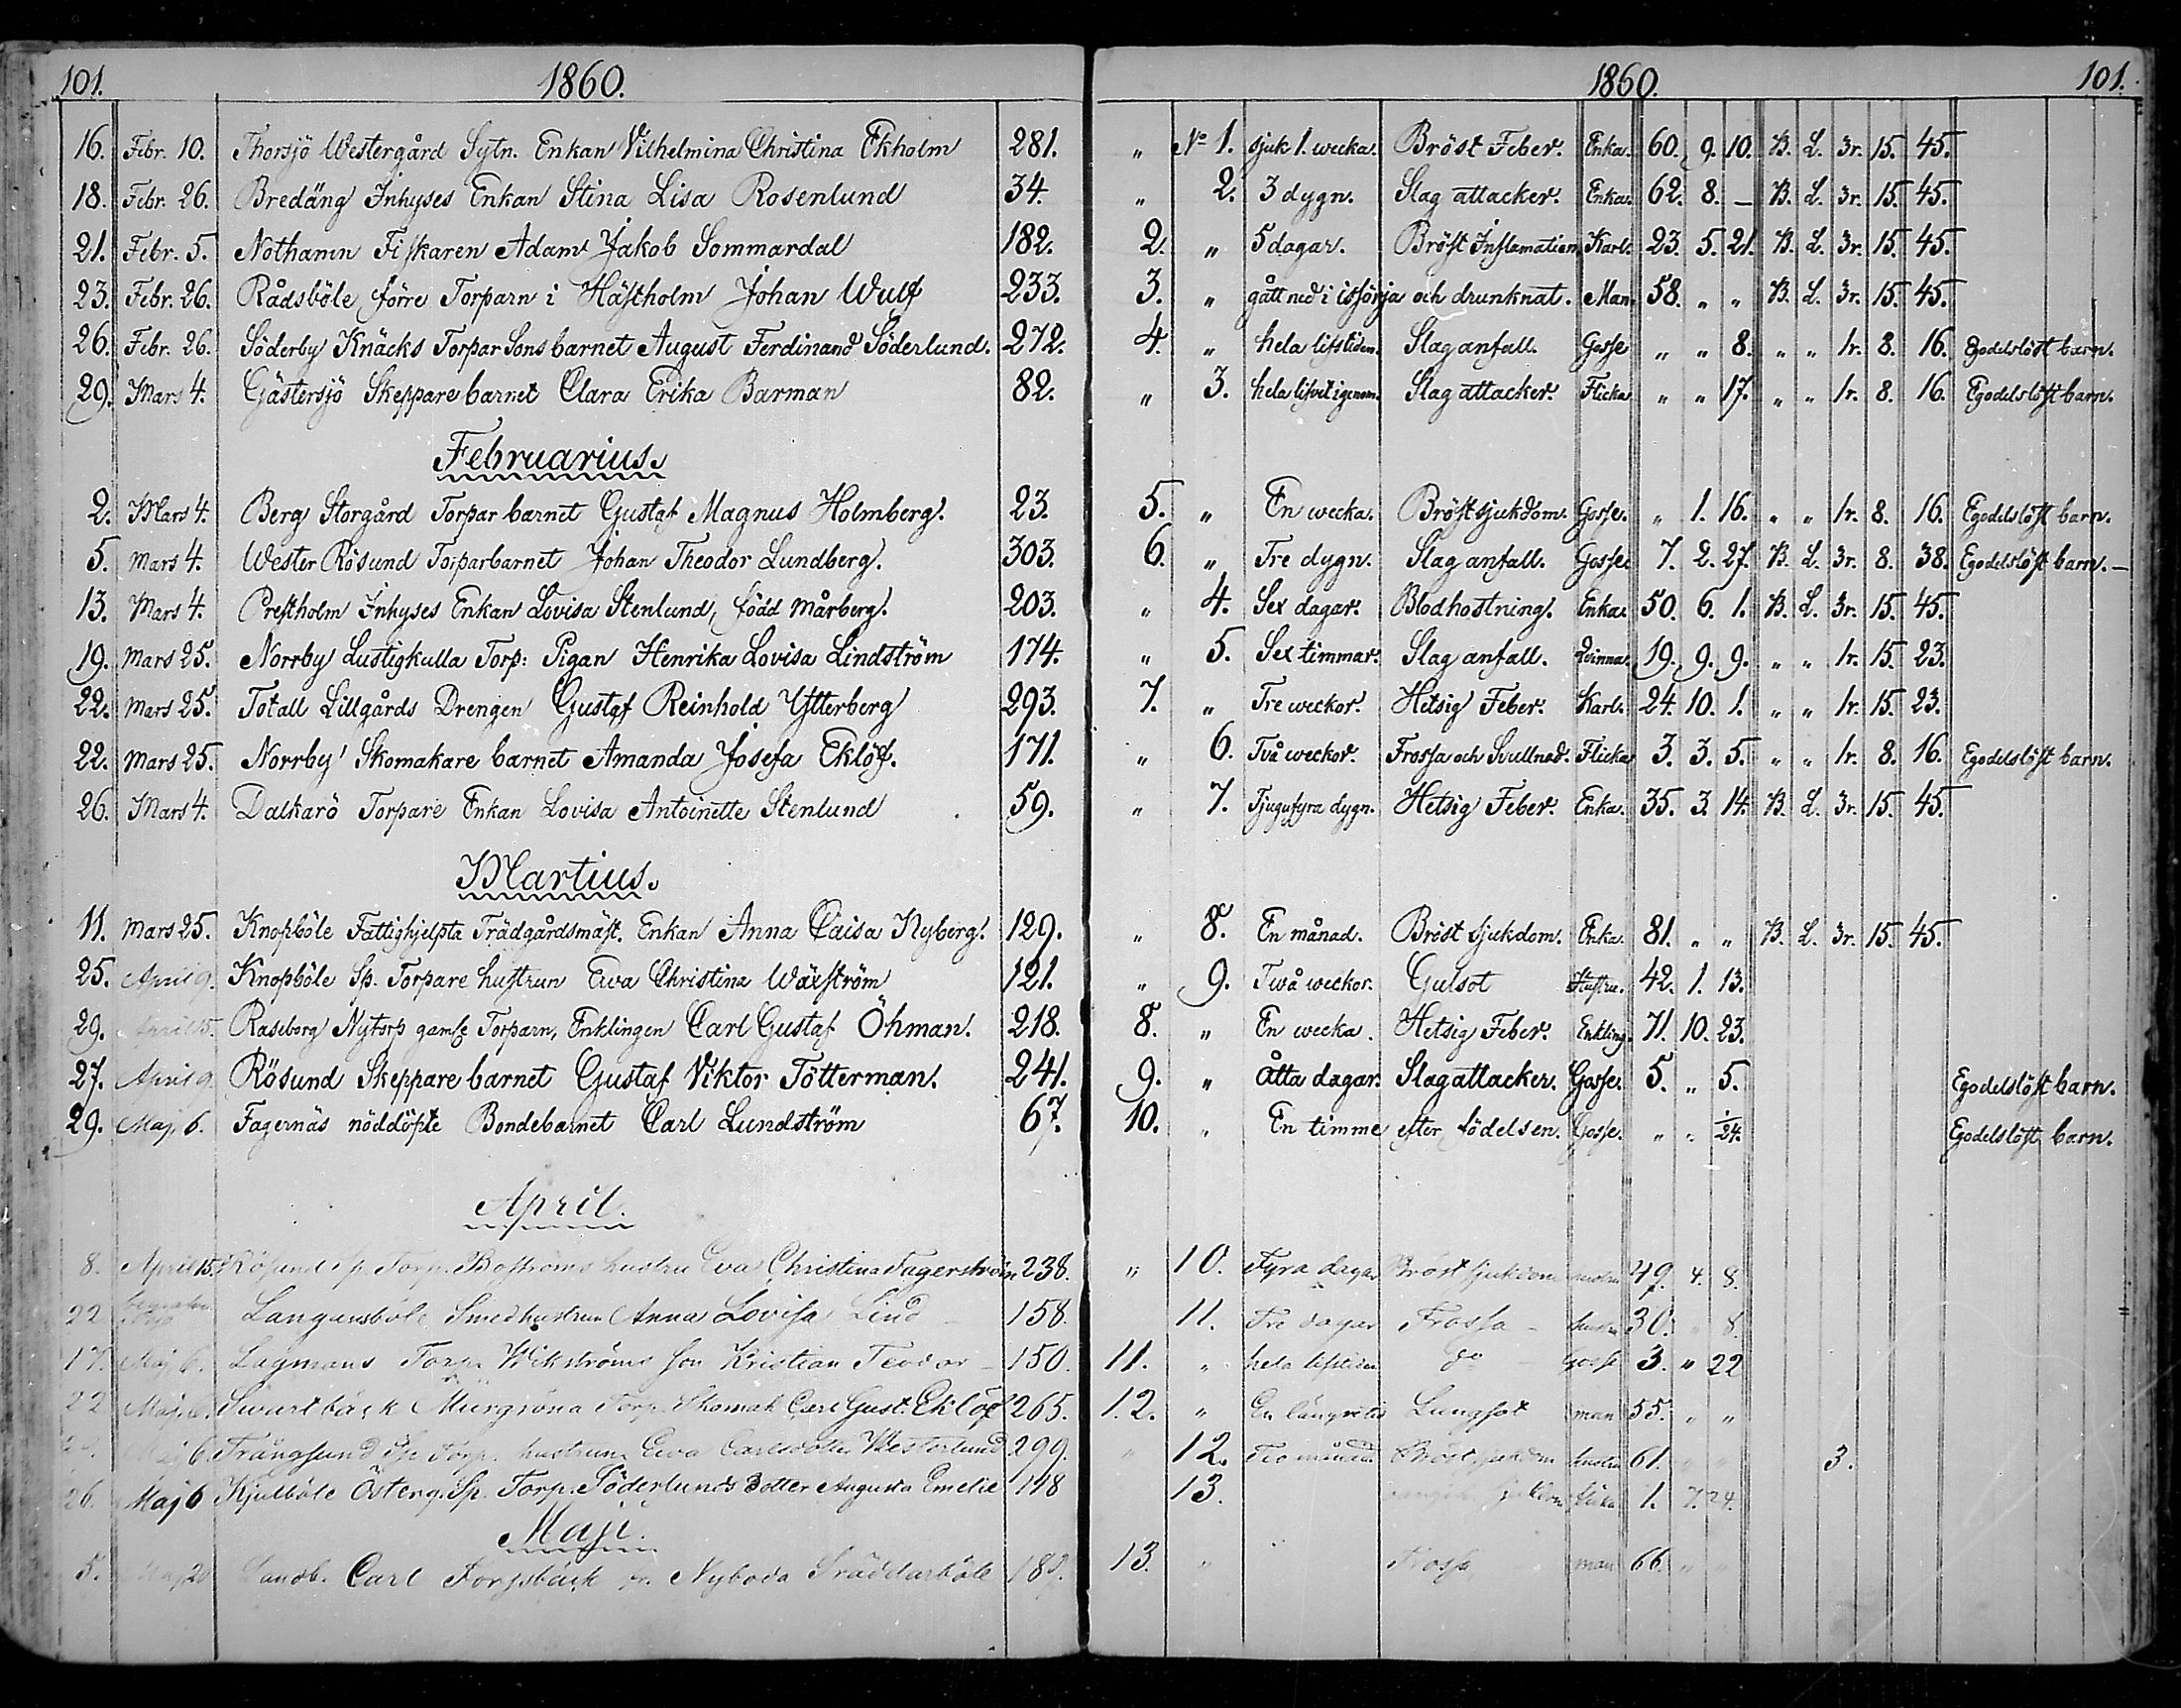 101. 1860. 1860. 101.
16. Febr. 10. Thorsjö Westergård Sytn. Enkan Vilhelmina Christina Ekholm 281. " No 1. sjuk 1. wecka. Bröst Feber. Enka. 60. 9. 10. B. L. 3r. 15. 45.
18. Febr. 26. Bredäng Inhyses Enkan Stina Lisa Rosenlund 34. " 2. 3 dygn. Slag attacker. Enka. 62. 8. — B. L. 3r. 15. 45.
21. Febr. 5. Nothamn Fiskaren Adam Jakob Sommardal 182. 2. " 5 dagar. Bröst Inflamation Karl. 23. 5. 21. B. L. 3r. 15. 45.
23. Febr. 26. Rådsböle förre Torparn i Hästholm Johan Wulf 233. 3. " gått ned i issörja och drunknat. Man. 58. " " B. L. 3r. 15. 45.
26. Febr. 26. Söderby Knäcks Torpar Sons barnet August Ferdinand Söderlund. 272. 4. " hela lifstiden. Slag anfall. Gosse " " 8. " " 1r. 8. 16. Egodelslöst barn.
29. Mars 4. Gästersjö Skeppare barnet Clara Erika Barman 82. " 3. hela lifvet igenom. Slag attacker. Flicka " " 17. " " 1r. 8. 16. Egodelslöst barn.
Februarius.
2. Mars 4. Berg Storgård Torpar barnet Gustaf Magnus Holmberg. 23. 5. " En wecka. Bröstsjukdom. Gosse. " 1. 16. " " 1r. 8. 16. Egodelslöst barn.
5. Mars 4. Wester Rösund Torparbarnet Johan Theodor Lundberg. 303. 6. " Tre dygn. Slag anfall. Gosse 7. 2. 27. B. L. 3r. 8. 38. Egodelslöst barn. —
13. Mars 4. Prestholm Inhyses Enkan Lovisa Stenlund, född Mårberg. 203. " 4. Sex dagar. Blodhostning. Enka. 50. 6. 1. B. L. 3r. 15. 45.
19. Mars 25. Norrby Lustigkulla Torp: Pigan Henrika Lovisa Lindström 174. " 5. Sex timmar. Slag anfall. Qvinna 19. 9. 9. " " 1r. 15. 23.
22. Mars 25. Totall Lillgårds Drengen Gustaf Reinhold Ytterberg 293. 7. " Tre weckor. Hetsig Feber. Karl. 24. 10. 1. " " 1r. 15. 23.
22. Mars 25. Norrby Skomakare barnet Amanda Josefa Eklöf. 171. " 6. Två weckor. Frossa och Svullnad. Flicka 3. 3. 5. " " 1r. 8. 16. Egodelslöst barn.
26. Mars 4. Dalkarö Torpare Enkan Lovisa Antoinette Stenlund 59. " 7. Tjugufyra dygn. Hetsig Feber. Enka. 35. 3. 14. B. L. 3r. 15. 45.
Martius.
11. Mars 25. Knopböle Fattighjelpta Trädgårdsmäst. Enkan Anna Caisa Nyberg. 129. " 8. En månad. Bröst sjukdom. Enka. 81. " " B. L. 3r. 15. 45.
25. April 9. Knopböle Sp. Torpare hustrun Ewa Christina Waxström 121. " 9. Twå weckor. Gulsot Hustru. 42. 1. 13.
29. April 15. Raseborg Nytorp gamle Torparn, Enklingen Carl Gustaf Öhman. 218. 8. " En wecka. Hetsig Feber. Enkling. 71. 10. 23.
27. April 9 Rösund Skeppare barnet Gustaf Viktor Tötterman. 241. 9. " Åtta dagar. Slagattacker. Gosse. 5. " 5. Egodelslöst barn.
29. Maj. 6. Fagernäs nöddöpte Bondebarnet Carl Lundström 67. 10. " En timme efter födelsen. Gosse. " " 1/24. Egodelslöst barn.
April.
8. April 15. Rösund Sp. Torp. Boströms hustru Eva Christina Fagerström 238. " 10. Fyra dagar Bröst sjukdom hustru 49. 4. 8.
22 Langansböle Smedhustrun Anna Lovisa Lind 158. 11. Tre dagar Frossa – hustru 30. " 8.
17. Maj 6. Lagmans Torp. Wikströms son Kristian Teodor – 150. 11. " hela lifstiden do gosse 3. " 22
22 Maj. 6. Swartbäck Murgröna Torp. Skomak Carl Gust. Eklöf 265. 12. " En längre tid Lungsot man 55. " "
Maj 6. Trångsund Sp. Torp. hustrun Ewa Carlsdotter Westerlund 299. " 12. Tio månader Bröst sjukdom hustru 61. " " 3.
26. Maj 6 Kjulböle Österg. Sp. Torp. Söderlunds dotter Augusta Emelie 148 13. flicka 1. 7. 24.
Maji.
5. Maj 20 Landb. Carl Forssbäck fr. Nyboda Sräddarböle 189. 13. " Frossa man 66. " "